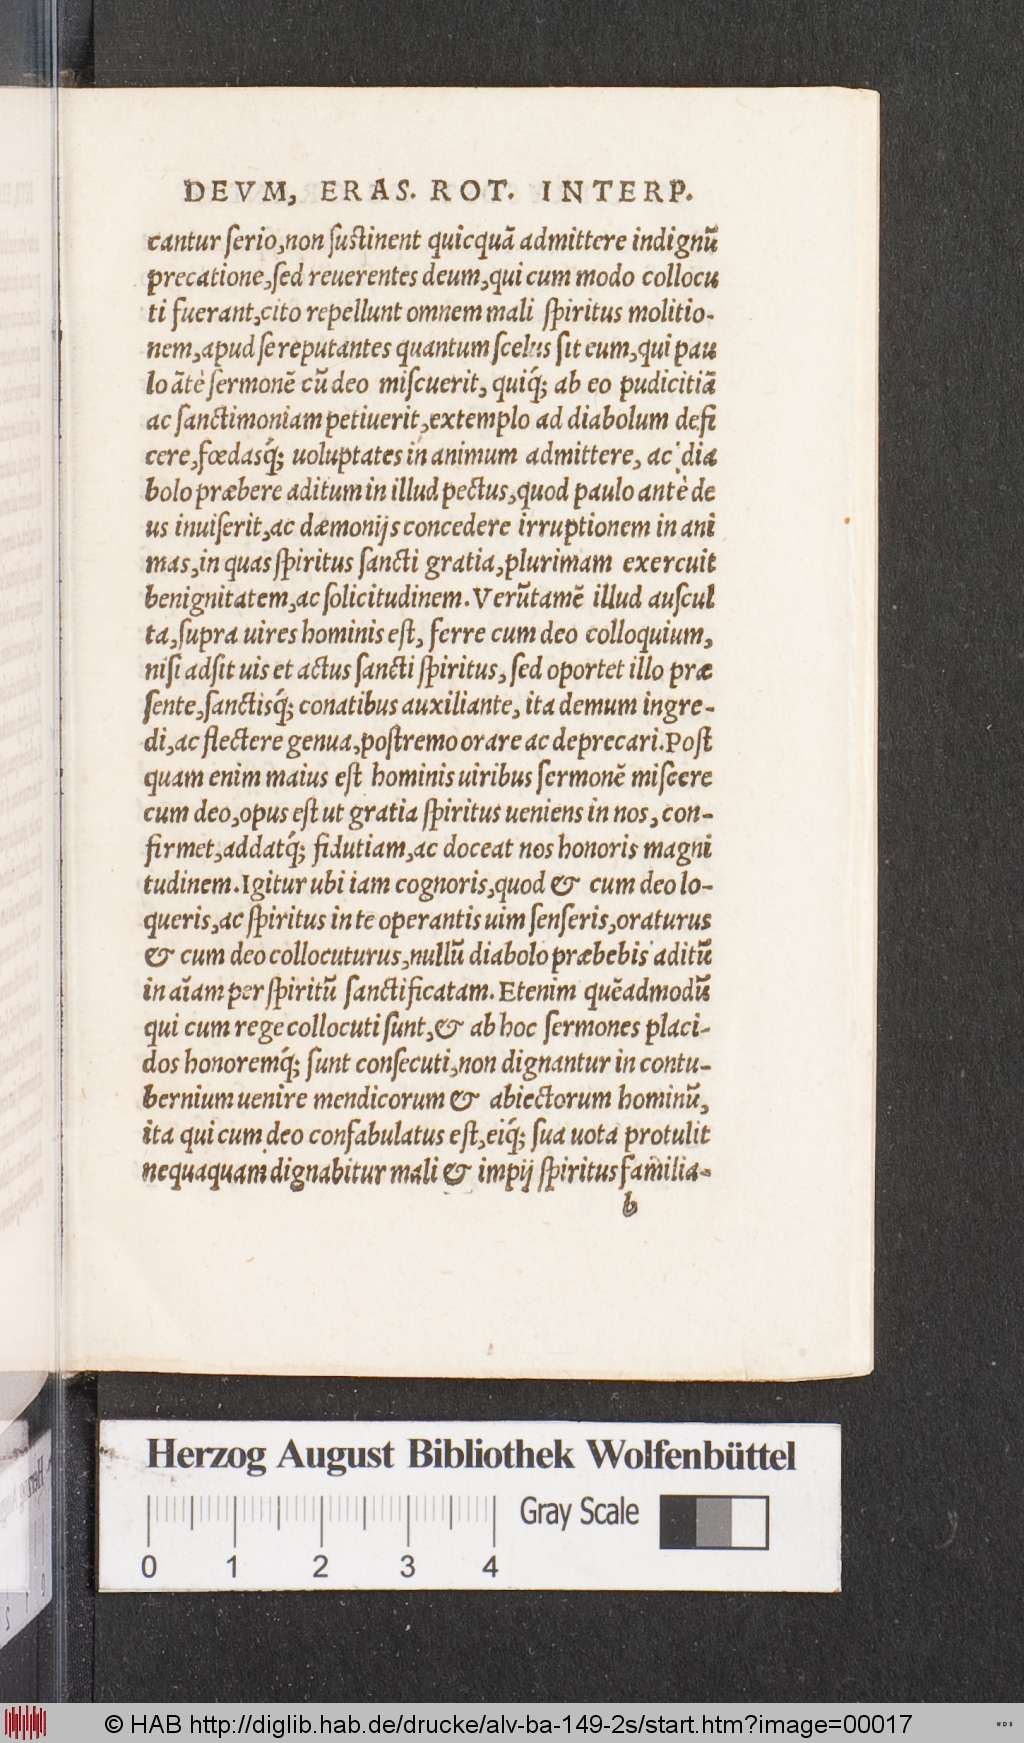 DEVM, ERAS. ROT. INTERP.
cantur ſerio,non ſuſtinent quicquā admittere indignū
precatione,ſed reuerentes deum,qui cum modo collocu
ti fuerant,cito repellunt omnem mali ſpiritus molitio-
nem,apud ſe reputantes quantum ſcelus ſit eum,qui pau
lo āte ſermonē cū deo miſcuerit, quiq́; ab eo pudicitiā
ac ſanctimoniam petiuerit,extemplo ad diabolum defi
cere,fœdasq́; uoluptates in animum admittere, ac dia
bolo præbere aditum in illud pectus,quod paulo antè de
us inuiſerit,ac dæmonijs concedere irruptionem in ani
mas,in quas ſpiritus ſancti gratia,plurimam exercuit
benignitatem,ac ſolicitudinem.Verūtamē illud auſcul
ta,ſupra uires hominis eſt, ferre cum deo colloquium,
niſi adſit uis et actus ſancti ſpiritus, ſed oportet illo præ
ſente,ſanctisq́; conatibus auxiliante, ita demum ingre-
di,ac flectere genua,poſtremo orare ac deprecari.Poſt
quam enim maius eſt hominis uiribus ſermonē miſcere
cum deo,opus eſt ut gratia ſpiritus ueniens in nos, con-
firmet,addatq́; fidutiam,ac doceat nos honoris magni
tudinem.Igitur ubi iam cognoris,quod & cum deo lo-
queris,ac ſpiritus in te operantis uim ſenſeris,oraturus
& cum deo collocuturus,nullū diabolo præbebis aditū
in aīam per ſpiritū ſanctificatam.Etenim quēadmodū
qui cum rege collocuti ſunt,& ab hoc ſermones placi-
dos honoremq́; ſunt conſecuti,non dignantur in contu-
bernium uenire mendicorum & abiectorum hominū,
ita qui cum deo confabulatus eſt,eiq́; ſua uota protulit
nequaquam dignabitur mali & impij ſpiritus familia-
b
Herzog August Bibliothek Wolfenbüttel
Gray Scale
0 1 2 3 4
© HAB http://diglib.hab.de/drucke/alv-ba-149-2s/start.htm?image=00017